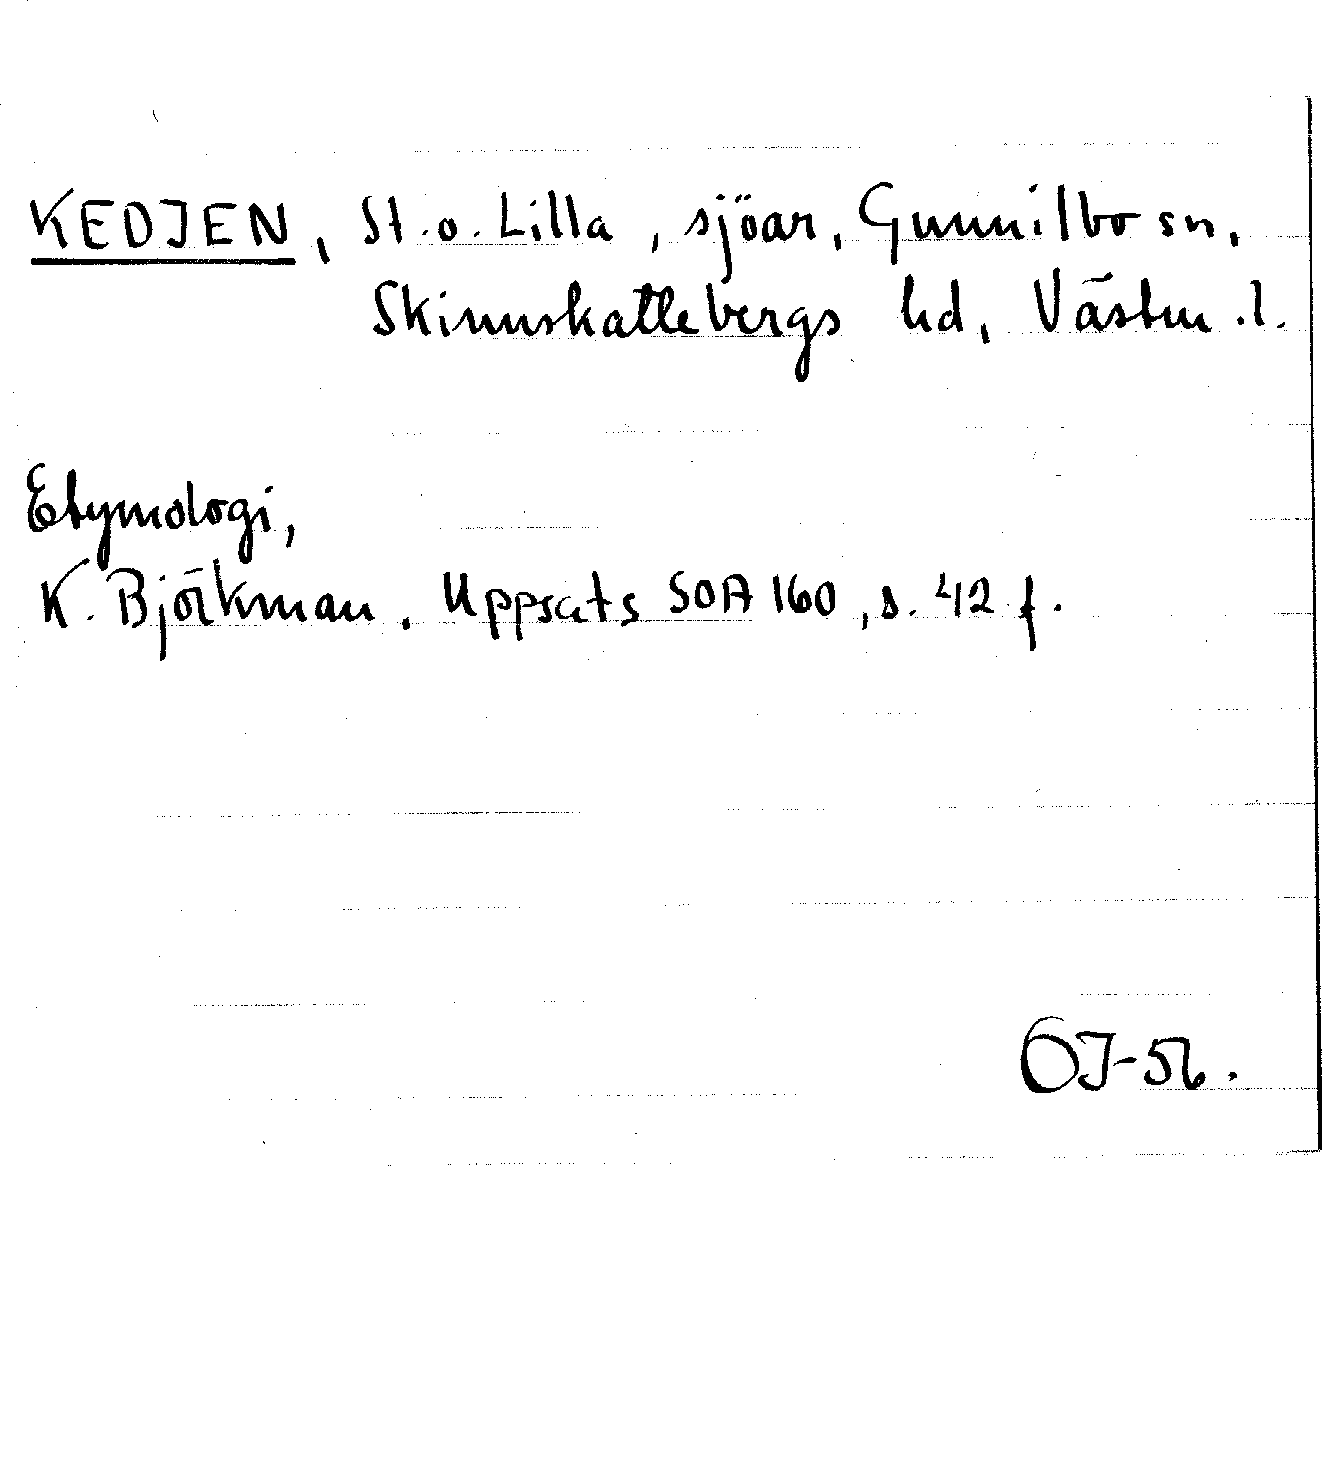 KEDJEN, St. o. Lilla, sjöar, Gunnilbo sn,
Skinnskattebergs hd, Västm. l.
Etymologi,
K. Björkman. Uppsats SOA 160, s. 42 f.
OJ-56.